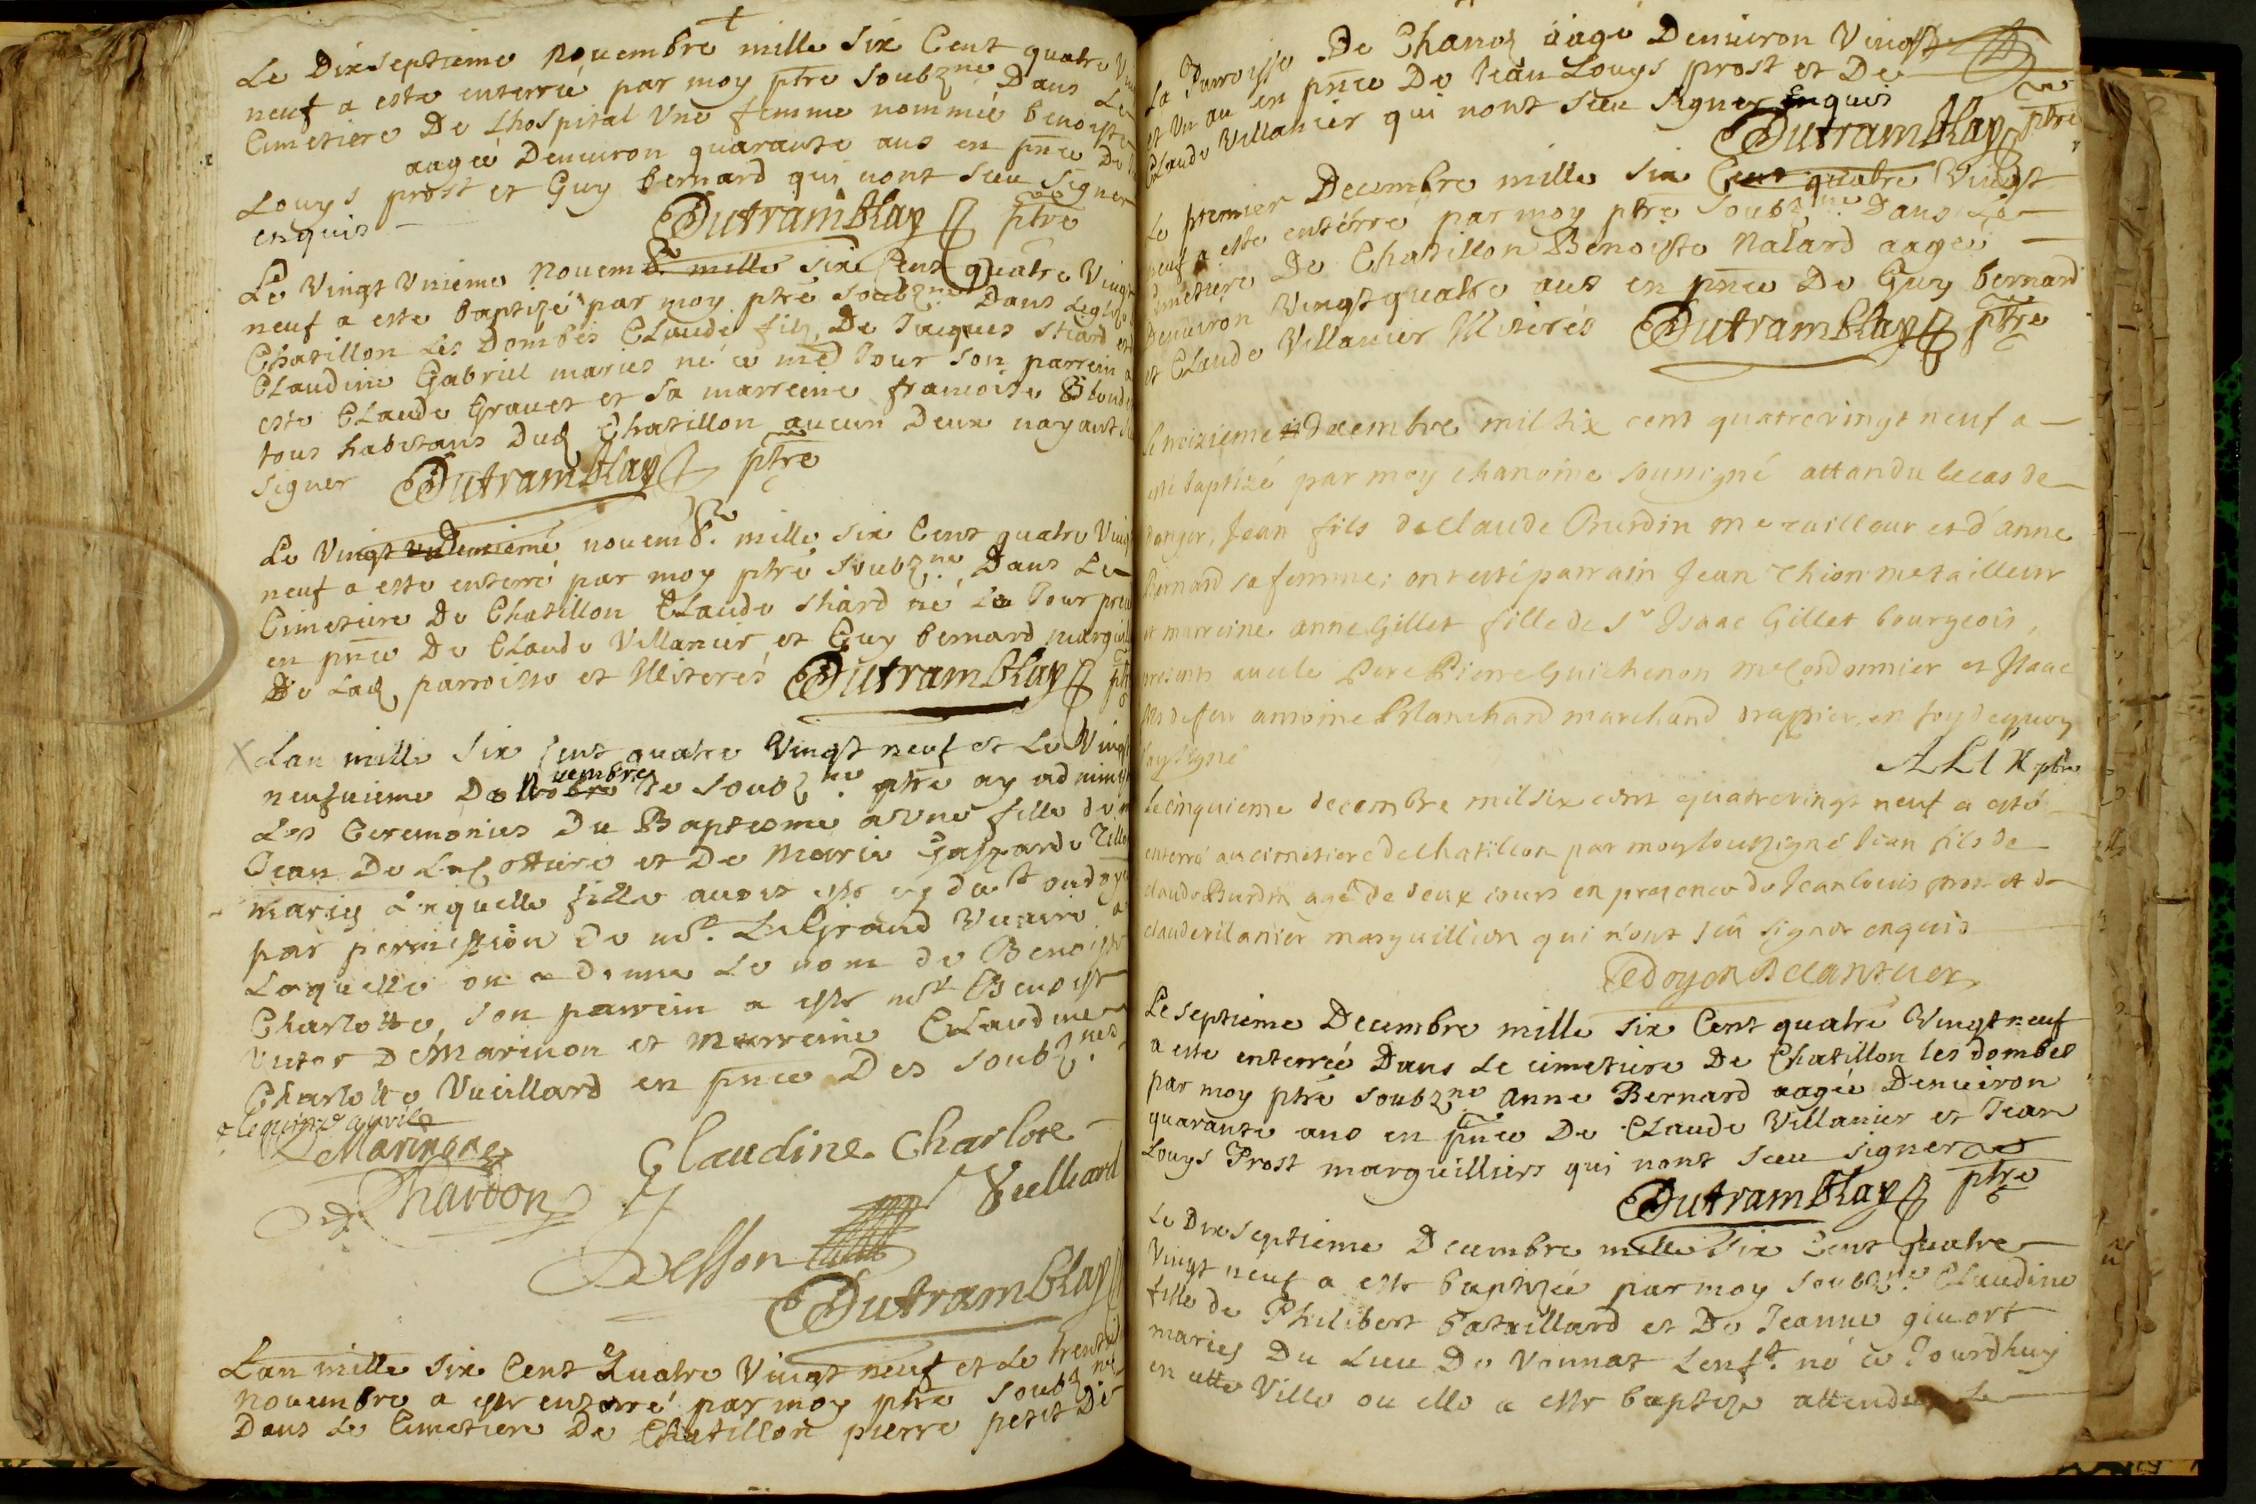 Le Dixseptieme novembre mille six Cent quatre
neuf a este enterrée par moy ptre soubzne Dans Le
Cimetiere De Lhospital Une femme nommée benoiste
aagée Denuiron quarante ans en pnce De
Louys prost et Guy bernard qui nont sceu signer
enquis
Dutramblay ptre
Le Vingt Unieme novemb. mille six Cent quatre Vingt
neuf a este baptizé par moy ptre soubzne Dans Leglize
Chatillon Les Dombes Claude filz De Jacques Shard et
Claudine Gabriel maries né ce med Jour son parrein a
este Claude Gravet et sa marreine francoise
tous habitans Dud Chatillon aucun Deux nayant
signer Dutramblay ptre
Le Vingt Deuxieme novemb. mille six Cent quatre Vingt
neuf a este enterré par moy ptre soubzne Dans Le
Cimetiere De Chatillon Claude Shard né Le Jour
en pnce De Claude Villanier et Guy bernard
De Lad parroisse et Miterés Dutramblay
Lan mille six Cent quatre Vingt neuf et Le Vingt
neufuieme De Nouembre Je soubzne ptre ay
Les Ceremonies Du Baptesme a Une fille de
Jean De et De Marie Gasparde
maries Laquelle fille avoit este
par permission de Mr. Le Grand Vicaire a
Laquelle on a donné Le nom de Benoiste
Charlotte, son parrein a este Mr Benoist
Victor DeMarinon et Marreine Claudine
Charlotte Vuillard en pnce Des soubznes
avril
Charbon Claudine Charlote
Vuilliard
Besson
Dutramblay
Lan mille six Cent Quatre Vingt neuf et Le
nouembre a este enterré par moy ptre soubzne
Dans Le Cimetiere De Chatillon pierre petit De
La Parroisse De Chanoz aagé Denuiron Vingt
et Un an en pnce De Jean Louys prost et De
Claude Villanier qui nont sceu signer Enquis
Dutramblay ptre
Le premier Decembre mille six Cent quatre Vingt
neuf a este enterré par moy ptre soubzne Dans Le
Cimetiere De Chatillon Benoiste Nalard aagée
Denuiron Vingt quatre ans en pnce De Guy bernard
et Claude Villanier Miterés Dutramblay ptre
decembre mil six cent quatrevingt neuf a
esté baptizé par moy chanoine soussigné attandu le cas de
danger, Jean fils de Claude Burdin me tailleur et d'anne
Bernard sa femme; ont esté parrain Jean Chion me tailleur
et marreine anne Gillet fille de Sr Isaac Gillet bourgeois,
presents auec le Pere Pierre Guichenon me Cordonnier et Isaac
fils de feu antoine Blanchard marchand drappier, en foy dequoy
j'ay signé
ALIX ptre
Le cinquieme decembre mil six cent quatrevingt neuf a esté
enterré au cimetiere de Chatillon par moy soussigné Jean fils de
claude Burdin agé de deux jours en presence de Jean louis prost et de
claude vilanier marguillion qui n'ont sçû signer enquis
Le septieme Decembre mille six Cent quatre Vingt neuf
a este enterrée Dans Le cimetiere De Chatillon les dombes
par moy ptre soubzne anne Bernard aagée Denuiron
quarante ans en pnce De Claude Villanier et Jean
Louys Prost marguilliers qui nont sceu signer
Dutramblay ptre
Le Dixseptieme Decembre mille six Cent Quatre
Vingt neuf a este baptizée par moy soubzne Claudine
fille de Philibert bataillard et De Jeanne
maries Du Lieu De Vonnas Lenft né ce Jourdhuy
en cette Ville ou elle a este baptize attendu Le